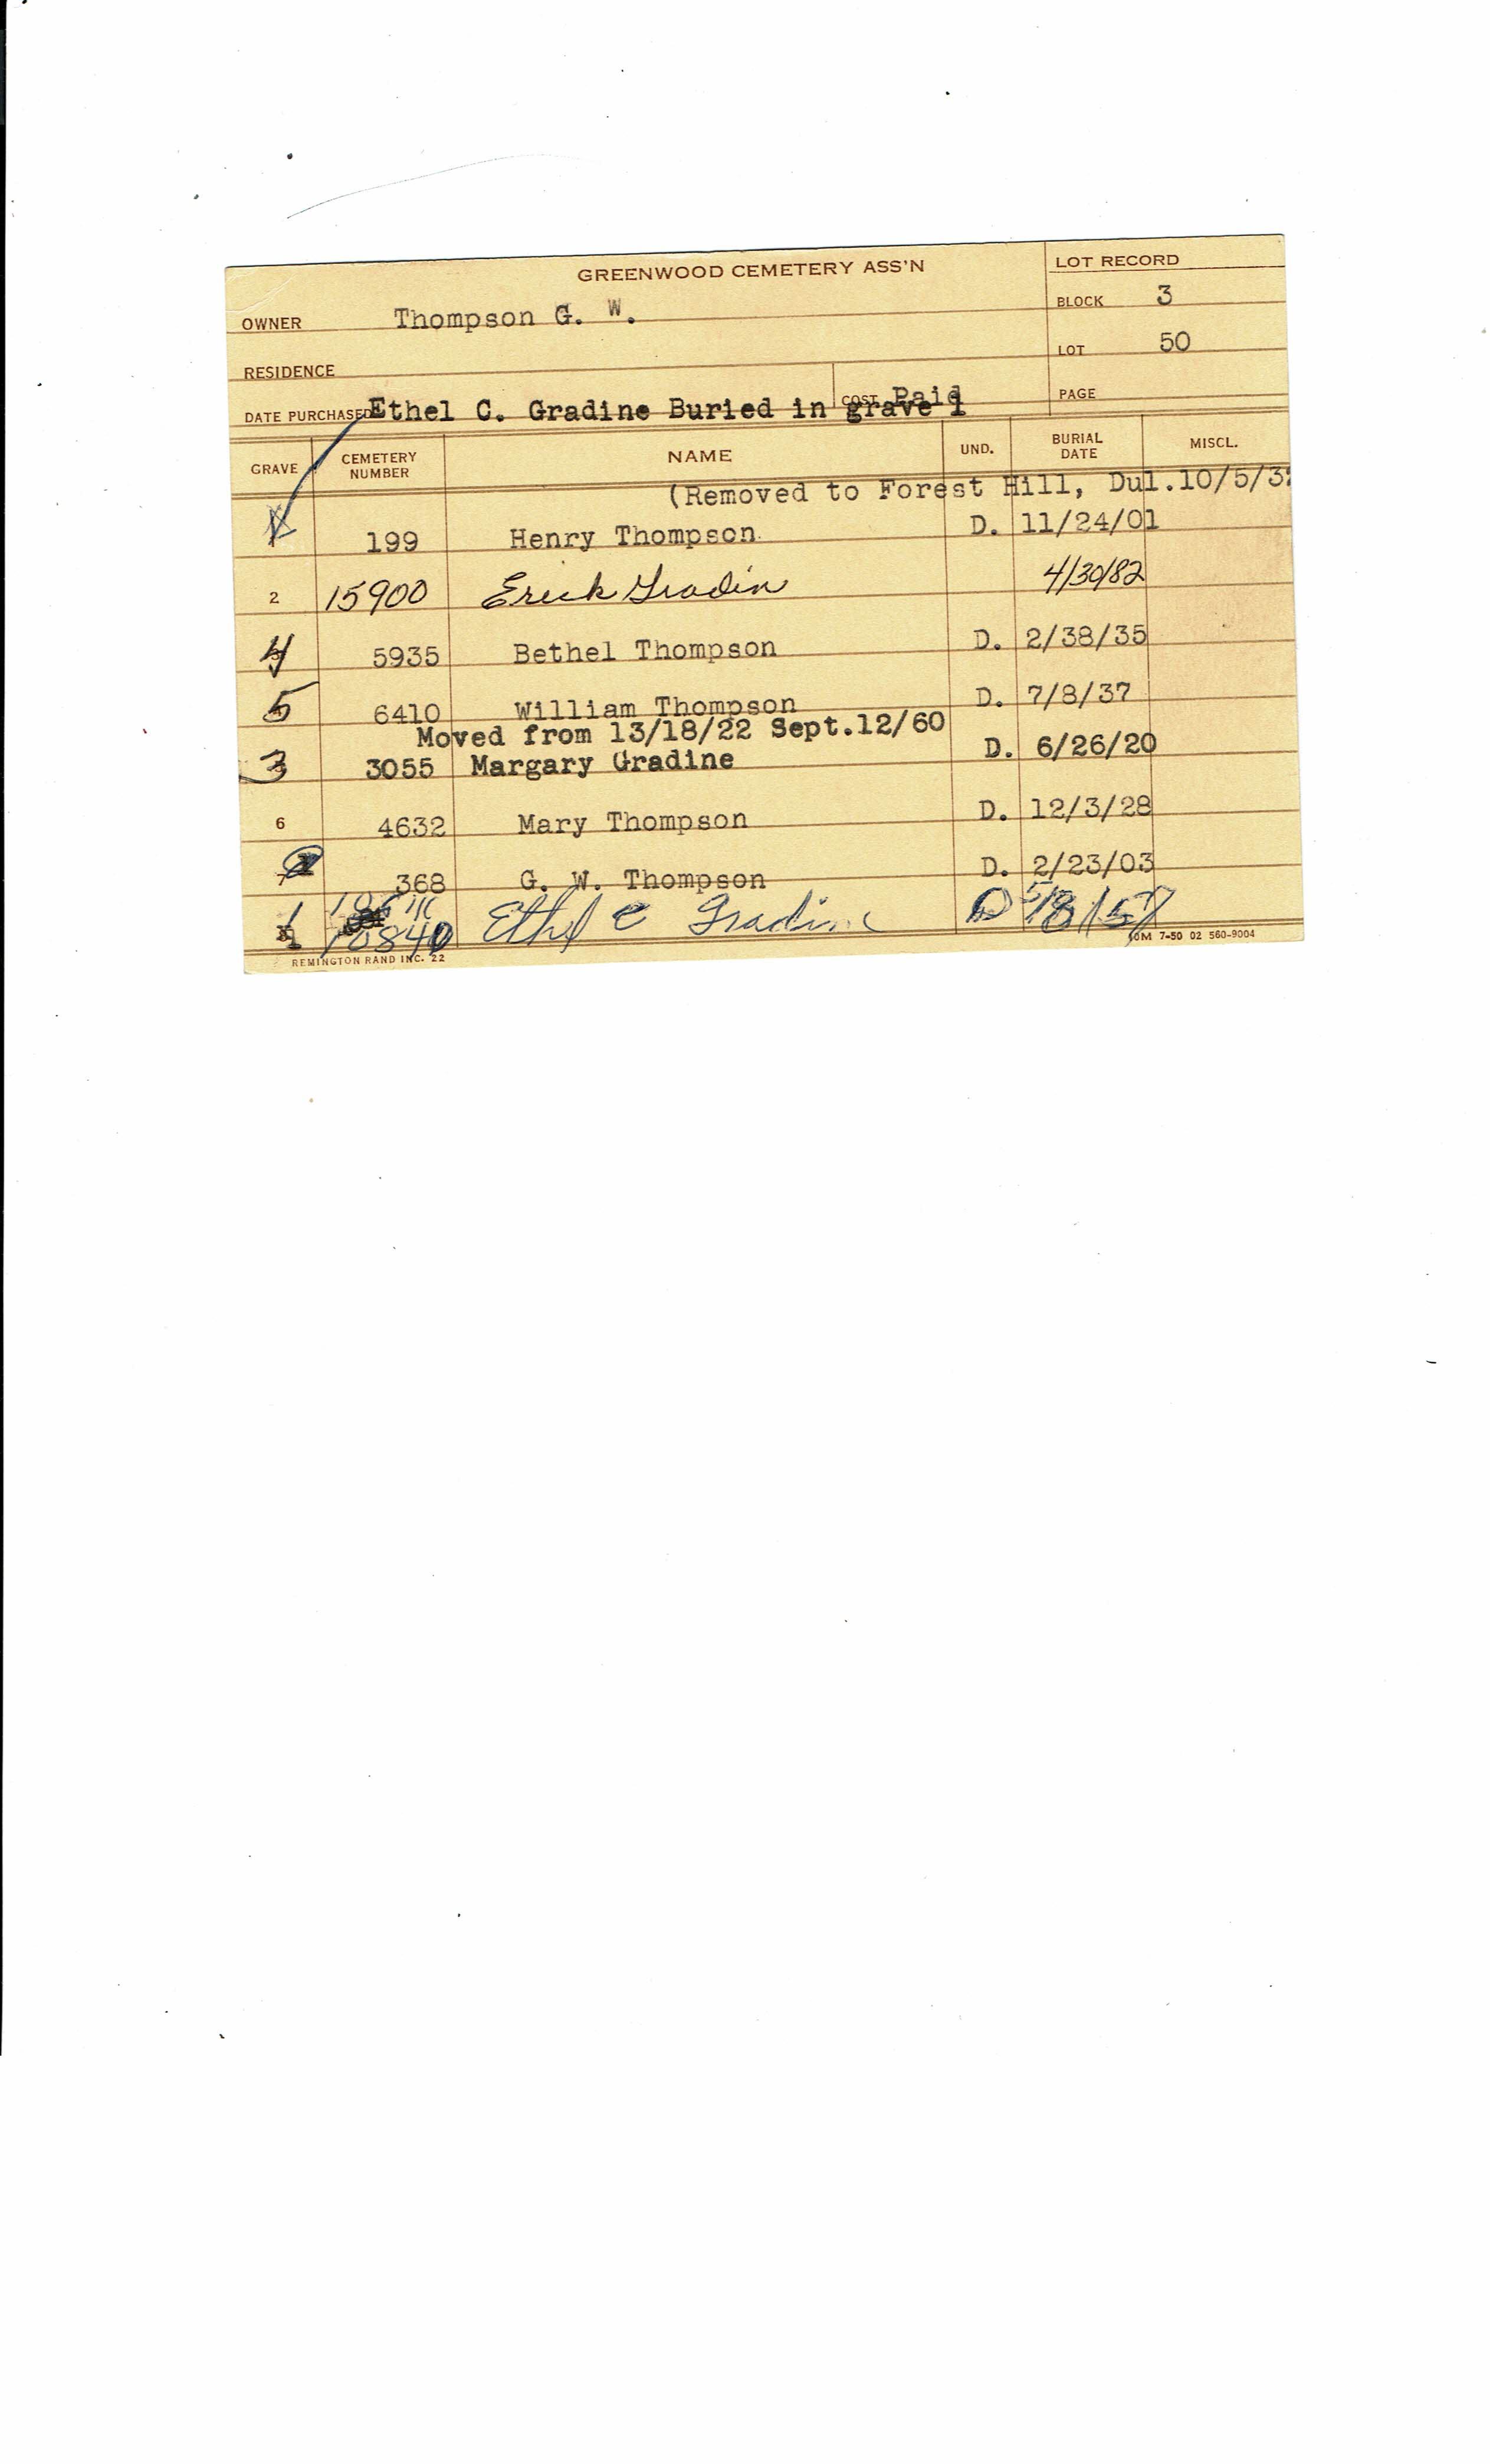 GREENWOOD CEMETERY ASS'N
LOT RECORD
OWNER Thompson G. W.
BLOCK 3
LOT 50
RESIDENCE
DATE PURCHASED Ethel C. Gradine Buried in grave 1 COST Paid
PAGE
GRAVE CEMETERY NUMBER NAME UND. BURIAL DATE MISCL.
(Removed to Forest Hill, Dul. 10/5/3
199 Henry Thompson D. 11/24/01
2 15900 Erick Gradin 4/30/82
4 5935 Bethel Thompson D. 2/38/35
5 6410 William Thompson D. 7/8/37
Moved from 13/18/22 Sept.12/60
3 3055 Margary Gradine D. 6/26/20
6 4632 Mary Thompson D. 12/3/28
368 G. W. Thompson D. 2/23/03
1 10840 Ethel C Gradine D /8/57
REMINGTON RAND INC. 22
10M 7-50 02 560-9004